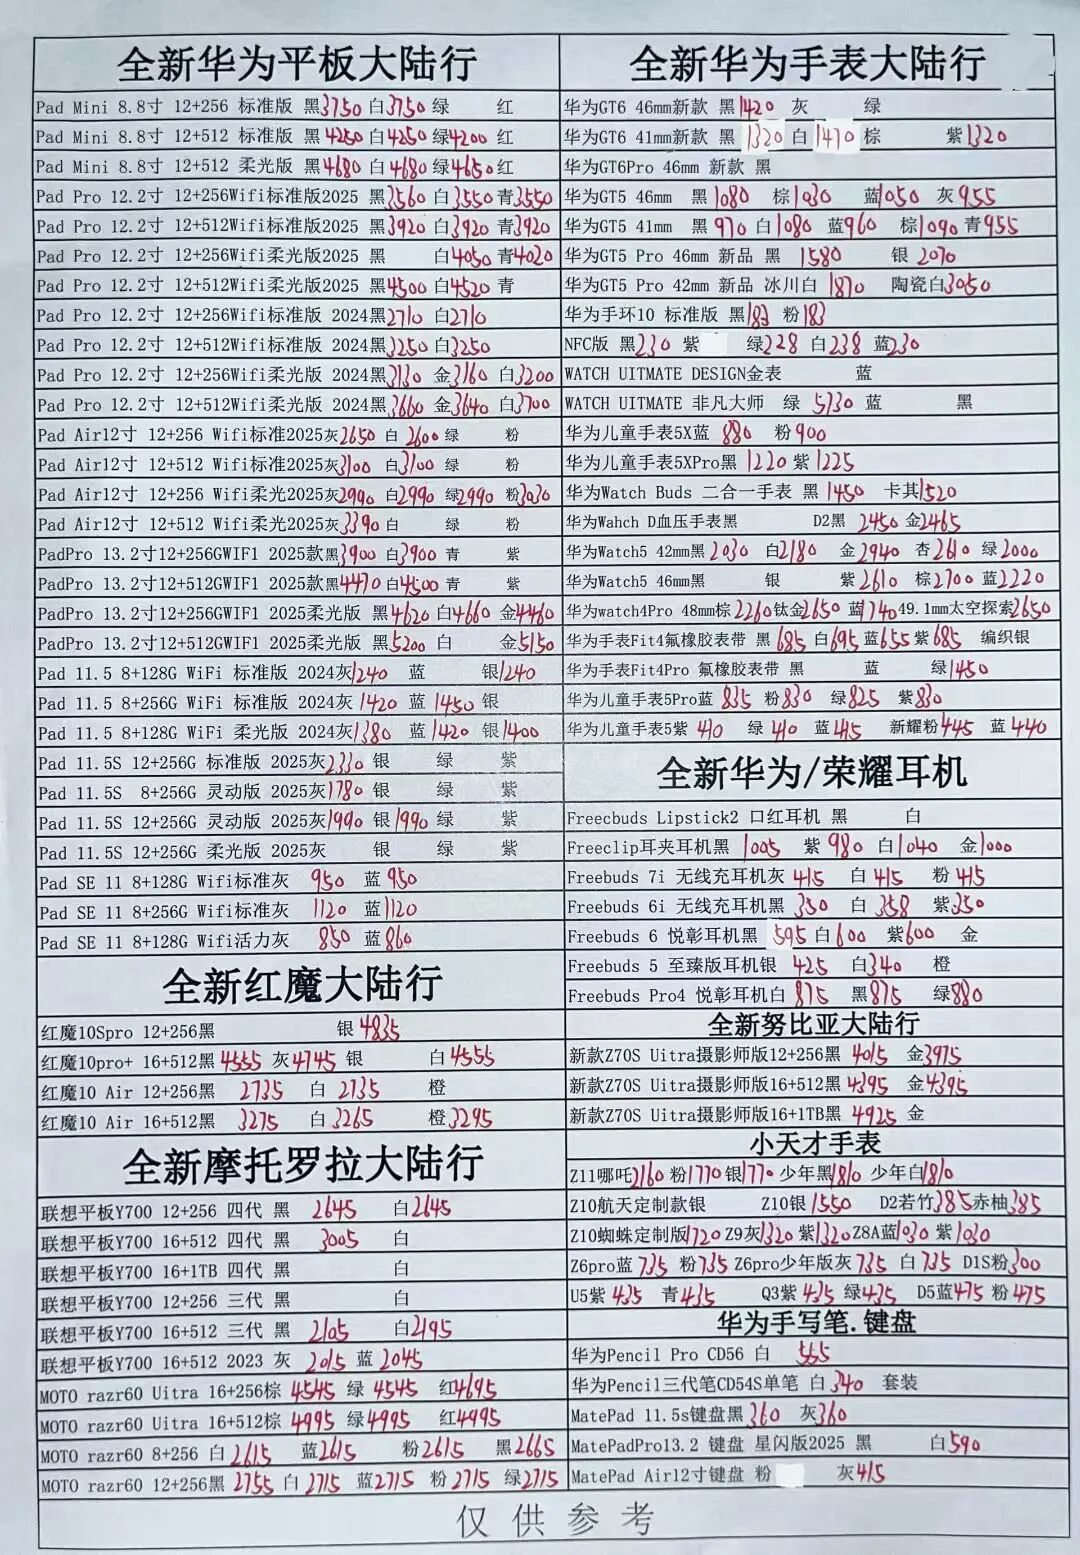 全新华为平板大陆行
Pad Mini 8.8寸 12+256 标准版 黑3750 白3750 绿 红
Pad Mini 8.8寸 12+512 标准版 黑4250 白4250 绿4200 红
Pad Mini 8.8寸 12+512 柔光版 黑4680 白4680 绿4650 红
Pad Pro 12.2寸 12+256Wifi标准版2025 黑3560 白3550 青3550
Pad Pro 12.2寸 12+512Wifi标准版2025 黑3920 白3920 青3920
Pad Pro 12.2寸 12+256Wifi柔光版2025 黑 白4050 青4020
Pad Pro 12.2寸 12+512Wifi柔光版2025 黑4500 白4520 青
Pad Pro 12.2寸 12+256Wifi标准版 2024黑2710 白2710
Pad Pro 12.2寸 12+512Wifi标准版 2024黑3250 白3250
Pad Pro 12.2寸 12+256Wifi柔光版 2024黑3130 金3160 白3200
Pad Pro 12.2寸 12+512Wifi柔光版 2024黑3660 金3640 白3700
Pad Air12寸 12+256 Wifi标准2025灰2650 白2600 绿 粉
Pad Air12寸 12+512 Wifi标准2025灰3100 白3100 绿 粉
Pad Air12寸 12+256 Wifi柔光2025灰2990 白2990 绿2990 粉3030
Pad Air12寸 12+512 Wifi柔光2025灰3390 白 绿 粉
PadPro 13.2寸12+256GWIF1 2025款黑3900 白3900 青 紫
PadPro 13.2寸12+512GWIF1 2025款黑4470 白4500 青 紫
PadPro 13.2寸12+256GWIF1 2025柔光版 黑4620 白4660 金4460
PadPro 13.2寸12+512GWIF1 2025柔光版 黑5200 白 金5150
Pad 11.5 8+128G WiFi 标准版 2024灰1240 蓝 银1240
Pad 11.5 8+256G WiFi 标准版 2024灰 1420 蓝 1450 银
Pad 11.5 8+128G WiFi 柔光版 2024灰1380 蓝 1420 银1400
Pad 11.5S 12+256G 标准版 2025灰2330 银 绿 紫
Pad 11.5S 8+256G 灵动版 2025灰1780 银 绿 紫
Pad 11.5S 12+256G 灵动版 2025灰1990 银1990 绿 紫
Pad 11.5S 12+256G 柔光版 2025灰 银 绿 紫
Pad SE 11 8+128G Wifi标准灰 950 蓝 950
Pad SE 11 8+256G Wifi标准灰 1120 蓝1120
Pad SE 11 8+128G Wifi活力灰 850 蓝860
全新红魔大陆行
红魔10Spro 12+256黑 银 4835
红魔10pro+ 16+512黑4555 灰4745 银 白4555
红魔10 Air 12+256黑 2735 白 2735 橙
红魔10 Air 16+512黑 3275 白 3265 橙3295
全新摩托罗拉大陆行
联想平板Y700 12+256 四代 黑 2645 白2645
联想平板Y700 16+512 四代 黑 3005 白
联想平板Y700 16+1TB 四代 黑 白
联想平板Y700 12+256 三代 黑 白
联想平板Y700 16+512 三代 黑 2105 白2195
联想平板Y700 16+512 2023 灰 2015 蓝 2045
MOTO razr60 Uitra 16+256棕 4545 绿 4545 红4695
MOTO razr60 Uitra 16+512棕 4995 绿4995 红4995
MOTO razr60 8+256 白2615 蓝2615 粉2615 黑2665
MOTO razr60 12+256黑 2755 白 2715 蓝2715 粉 2715 绿2715
全新华为手表大陆行
华为GT6 46mm新款 黑1420 灰 绿
华为GT6 41mm新款 黑 1320 白 1410 棕 紫1320
华为GT6Pro 46mm 新款 黑
华为GT5 46mm 黑 1080 棕1030 蓝1050 灰955
华为GT5 41mm 黑 970 白1080 蓝960 棕1090 青955
华为GT5 Pro 46mm 新品 黑 1580 银 2070
华为GT5 Pro 42mm 新品 冰川白 1870 陶瓷白3050
华为手环10 标准版 黑183 粉183
NFC版 黑230 紫 绿228 白238 蓝230
WATCH UITMATE DESIGN金表 蓝
WATCH UITMATE 非凡大师 绿 5730 蓝 黑
华为儿童手表5X蓝 880 粉900
华为儿童手表5XPro黑 1220 紫1225
华为Watch Buds 二合一手表 黑 1450 卡其1520
华为Wahch D血压手表黑 D2黑 2450 金2465
华为Watch5 42mm黑2030 白2180 金2940 杏2610 绿2000
华为Watch5 46mm黑 银 紫2610 棕2700 蓝2220
华为watch4Pro 48mm棕2260钛金2650 蓝1740 49.1mm太空探索2650
华为手表Fit4氟橡胶表带 黑 685 白695 蓝655 紫685 编织银
华为手表Fit4Pro 氟橡胶表带 黑 蓝 绿1450
华为儿童手表5Pro蓝 835 粉830 绿825 紫830
华为儿童手表5紫 410 绿 410 蓝 415 新耀粉445 蓝 440
全新华为/荣耀耳机
Freecbuds Lipstick2 口红耳机 黑 白
Freeclip耳夹耳机黑 1005 紫 980 白1040 金1000
Freebuds 7i 无线充耳机灰 415 白 415 粉 415
Freebuds 6i 无线充耳机黑 350 白 358 紫350
Freebuds 6 悦彰耳机黑 595 白600 紫600 金
Freebuds 5 至臻版耳机银 425 白340 橙
Freebuds Pro4 悦彰耳机白 875 黑875 绿880
全新努比亚大陆行
新款Z70S Uitra摄影师版12+256黑 4015 金3975
新款Z70S Uitra摄影师版16+512黑 4395 金4395
新款Z70S Uitra摄影师版16+1TB黑 4925 金
小天才手表
Z11哪吒2160 粉1770银1770 少年黑1810 少年白1810
Z10航天定制款银 Z10银 1550 D2若竹385赤柚385
Z10蜘蛛定制版1720 Z9灰1320 紫1320 Z8A蓝1030 紫1030
Z6pro蓝 735 粉735 Z6pro少年版灰 735 白 735 D1S粉300
U5紫 435 青435 Q3紫 435 绿435 D5蓝475 粉 475
华为手写笔.键盘
华为Pencil Pro CD56 白 555
华为Pencil三代笔CD54S单笔 白 340 套装
MatePad 11.5s键盘黑360 灰360
MatePadPro13.2 键盘 星闪版2025 黑 白590
MatePad Air12寸键盘 粉 灰415
仅供参考